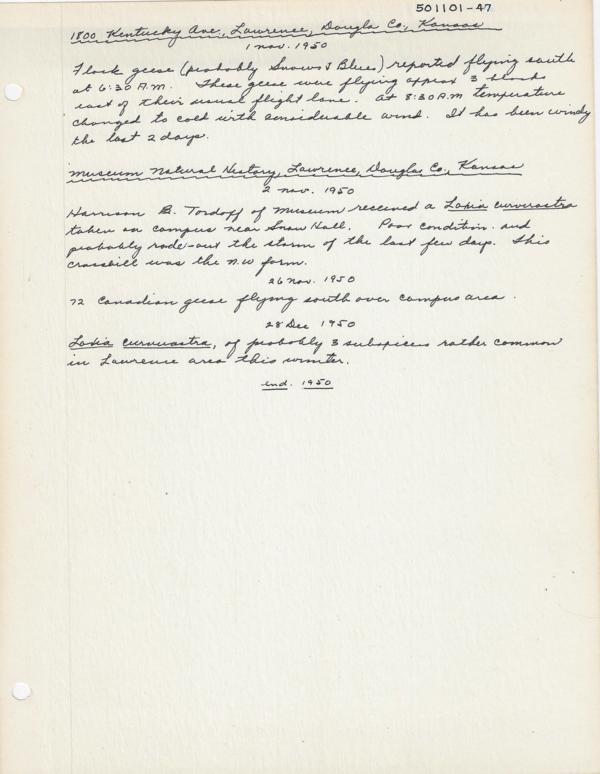 501101-47
1800 Kentucky Ave., Lawrence, Dougla Co., Kansas
1 nov. 1950
Flock geese (probably Snows & Blues) reported flying south
at 6:30 A.M. These geese were flying approx 3 blocks
east of their usual flight lane. At 8:30 A.M temperature
changed to cold with considerable wind. It has been windy
the last 2 days.
Museum Natural History, Lawrence, Douglas Co., Kansas
2 nov. 1950
Harrison B. Tordoff of Museum received a Loxia curvirostra
taken on campus near Snow Hall. Poor condition and
probably rode-out the storm of the last few days. This
crossbill was the N.W form.
26 nov. 1950
72 Canadian geese flying south over campus area.
28 Dec 1950
Loxia curvirostra, of probably 3 subspecies rather common
in Lawrence area this winter.
end. 1950